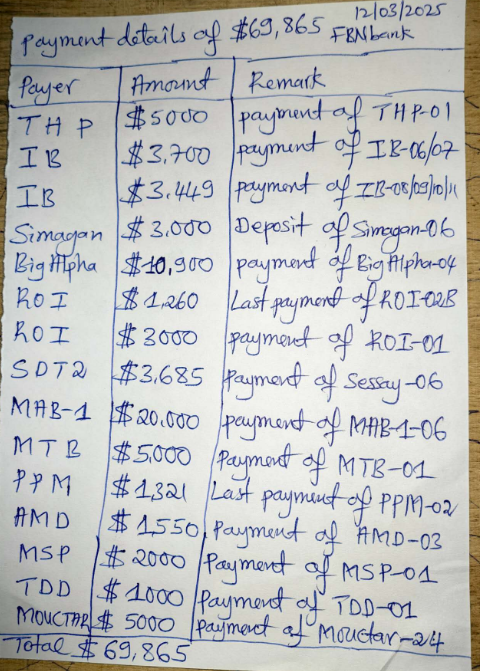 12/03/2025
payment details of $69,865 FBNbank
Payer Amount Remark
THP $5000 payment of THP-01
IB $3,700 payment of IB-06/07
IB $3.449 payment of IB-08/09/10/11
Simagan $3,000 Deposit of Simagan-06
BigAlpha $10,900 payment of BigAlpha-04
ROI $1,260 Last payment of ROI-02B
ROI $3000 payment of ROI-01
SDT2 $3,685 Payment of Sessay-06
MAB-1 $20,000 payment of MAB-1-06
MTB $5,000 Payment of MTB-01
PPM $1,321 Last payment of PPM-02
AMD $1,550 Payment of AMD-03
MSP $2000 Payment of MSP-01
TDD $1000 Payment of TDD-01
MOUCTAR $5000 payment of Mouctar-24
Total $69,865